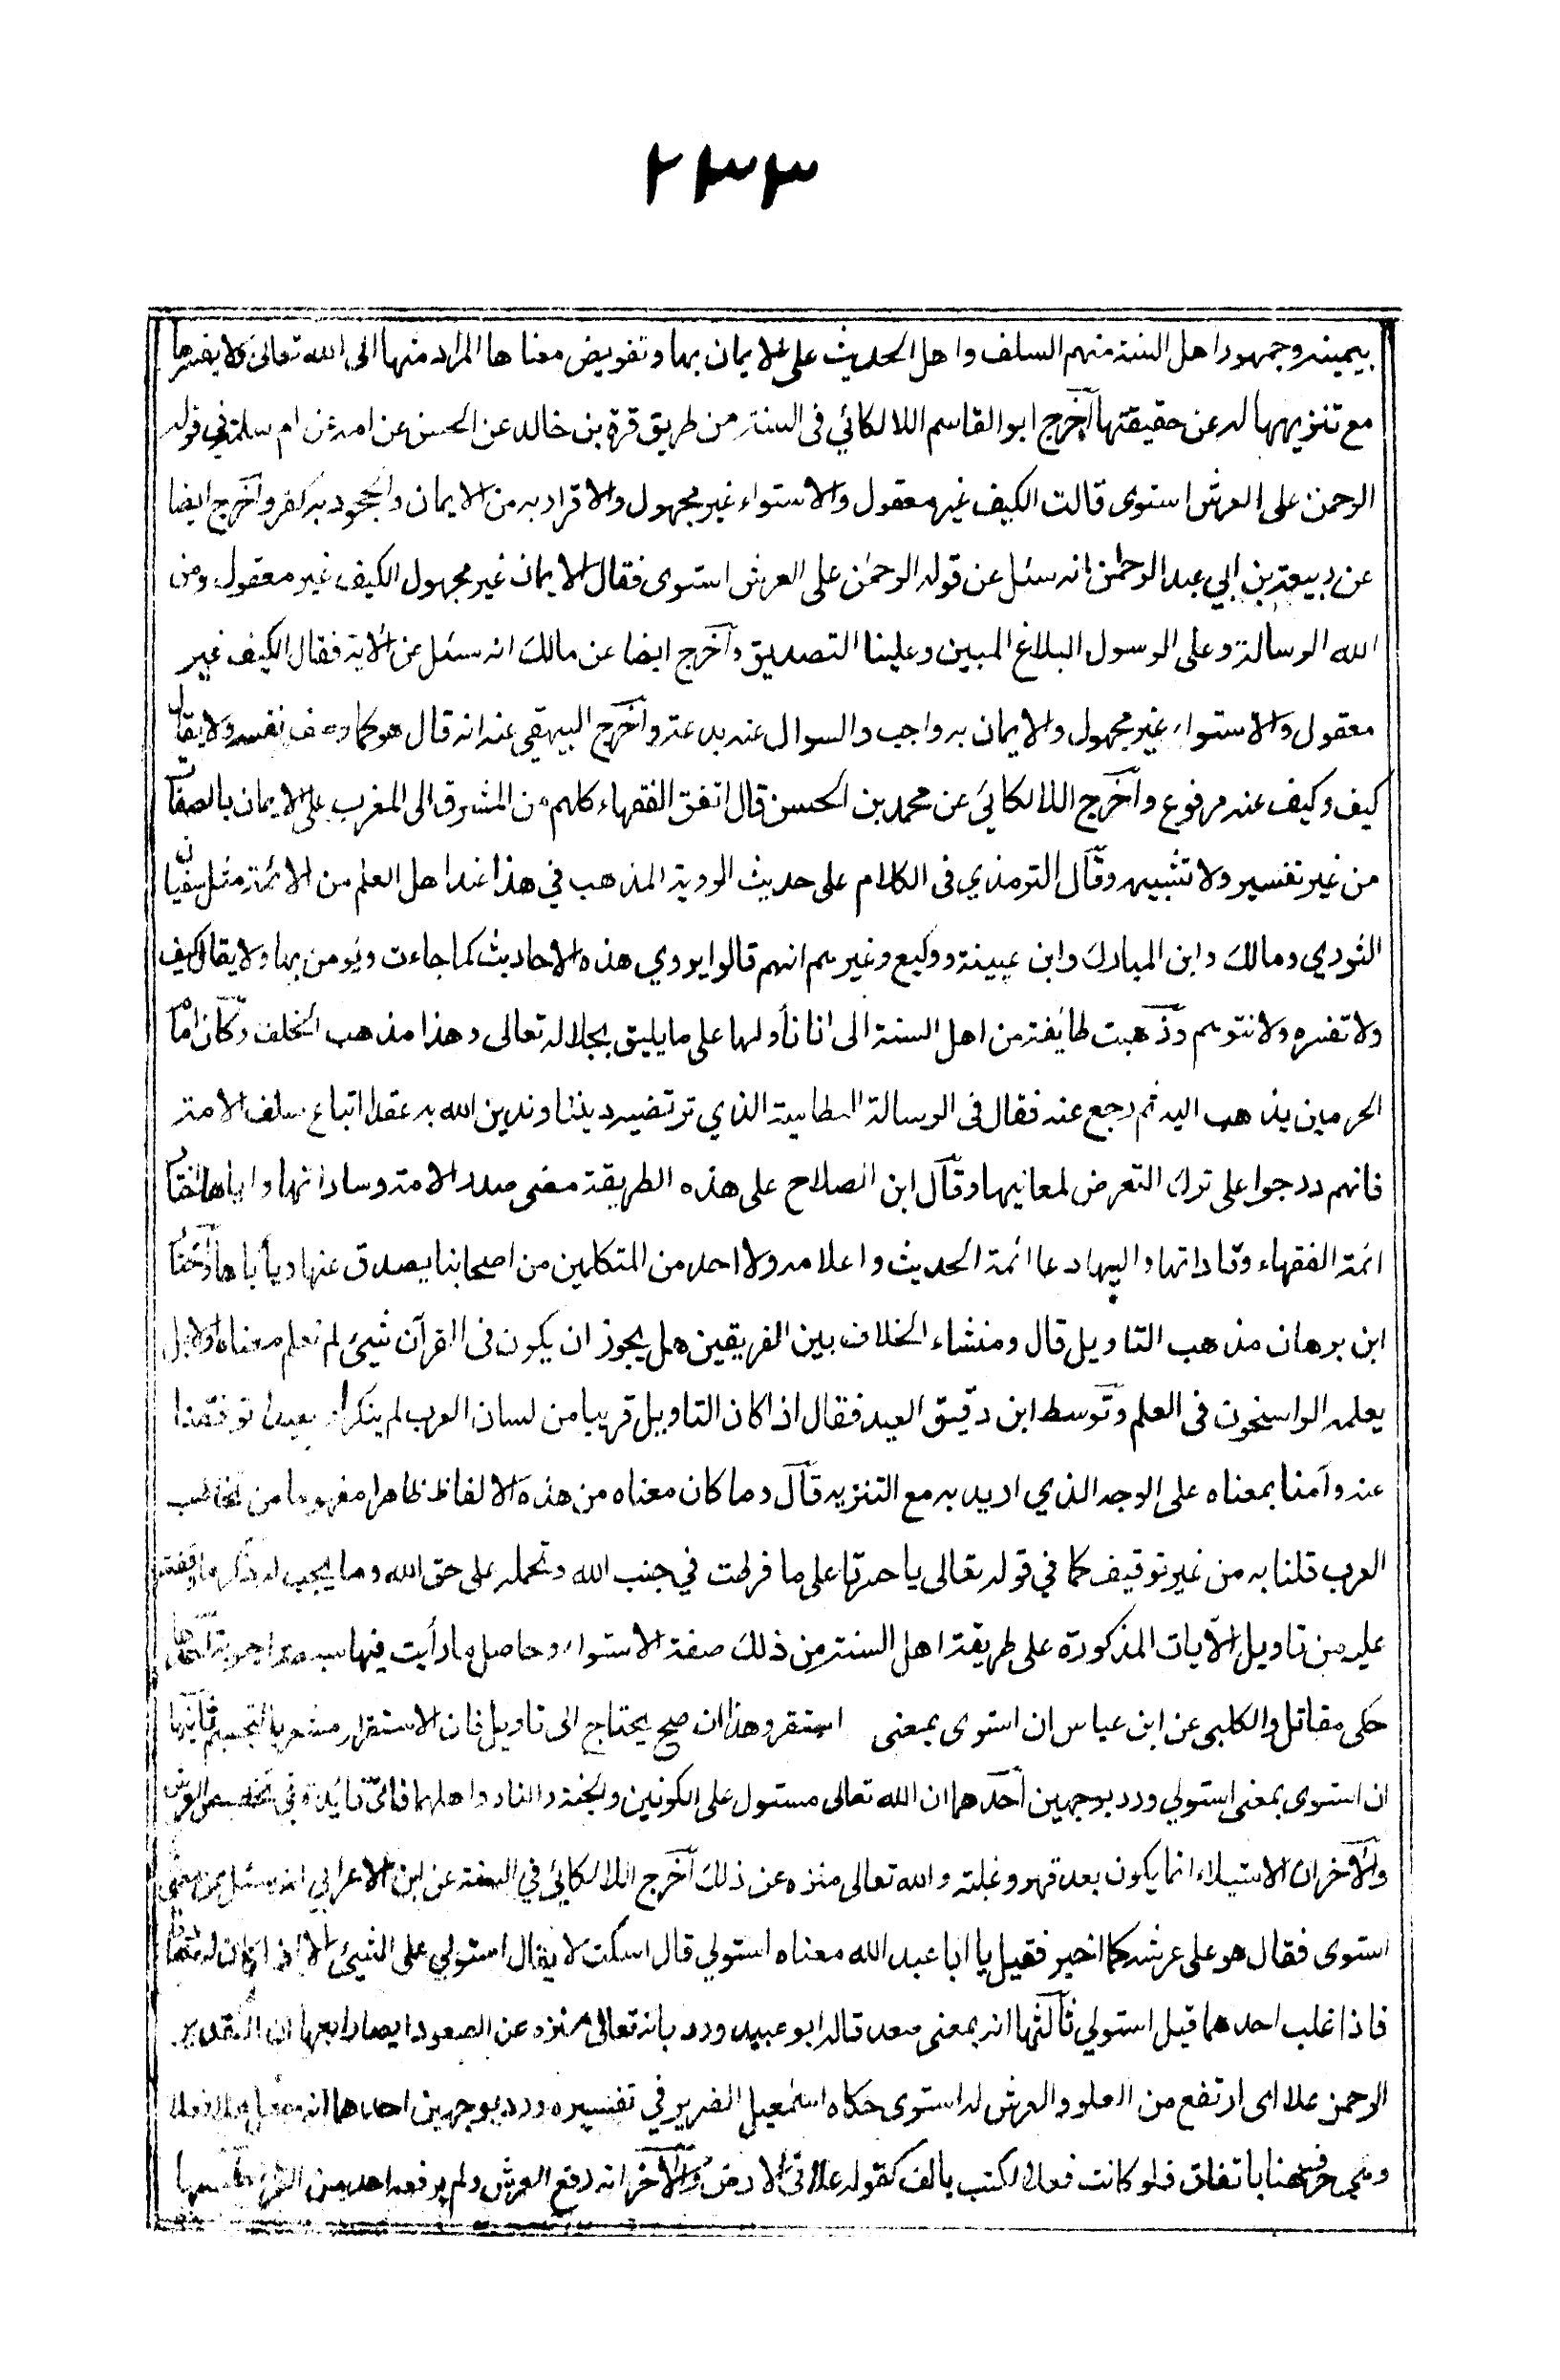 ٢٣٣
بيمينه وجمهور اهل السنة منهم السلف واهل الحديث على الايمان بها وتفويض معناها المراد منها الى الله تعالى ولا نفسرها
مع تنزيهنا له عن حقيقتها اخرج ابو القاسم اللالكائي فى السنة من طريق قرة بن خالد عن الحسن عن امه عن ام سلمة في قوله
الرحمن على العرش استوى قالت الكيف غير معقول والاستواء غير مجهول والاقرار به من الايمان والجحود به كفر واخرج ايضا
عن ربيعة بن ابي عبد الرحمٰن انه سئل عن قوله الرحمٰن على العرش استوى فقال الايمان غير مجهول الكيف غير معقول ومن
الله الرسالة وعلى الرسول البلاغ المبين وعلينا التصديق واخرج ايضا عن مالك انه سئل عن الاية فقال الكيف غير
معقول والاستواء غير مجهول والايمان به واجب والسوال عنه بدعة واخرج البيهقي عنه انه قال هو كما وصف نفسه ولا يقال
كيف وكيف عنه مرفوع واخرج اللالكائي عن محمد بن الحسن قال اتفق الفقهاء كلهم من المشرق الى المغرب على الايمان بالصفات
من غير تفسير ولا تشبيه وقال الترمذي فى الكلام على حديث الروية المذهب في هذا عند اهل العلم من الائمة مثل سفيان
الثوري ومالك وابن المبارك وابن عيينة ووكيع وغيرهم انهم قالوا يروي هذه الاحاديث كما جاءت ونؤمن بها ولا يقال كيف
ولا تفسره ولا نتوهم وذهبت طايفة من اهل السنة الى انا نأولها على ما يليق بجلاله تعالى وهذا مذهب الخلف وكان امام
الحرمين يذهب اليه ثم رجع عنه فقال فى الرسالة النظامية الذي ترتضيه دينا وندين الله به عقدا اتباع سلف الامة
فانهم درجوا على ترك التعرض لمعانيها وقال ابن الصلاح على هذه الطريقة مضى صدر الامة وساداتها واياها اختار
ائمة الفقهاء وقاداتها واليها دعا ائمة الحديث واعلامه ولا احد من المتكلمين من اصحابنا يصدق عنها ويأباها واختار
ابن برهان مذهب التاويل قال ومنشاء الخلاف بين الفريقين هل يجوز ان يكون فى القرآن شيئ لم نعلم معناه اولا بل
يعلمه الراسخون فى العلم وتوسط ابن دقيق العيد فقال اذا كان التاويل قريبا من لسان العرب لم ينكر او بعيدا توقفنا
عنه وآمنا بمعناه على الوجه الذي اريد به مع التنزيه قال وما كان معناه من هذه الالفاظ ظاهرا مفهوما من تخاطب
العرب قلنا به من غير توقيف كما في قوله تعالى يا حسرتا على ما فرطت في جنب الله وتحمله على حق الله وما يجب له ذكر ما وقفت
عليه من تاويل الآيات المذكورة على طريقة اهل السنة من ذلك صفة الاستواء وحاصل ما رأيت فيها سبعة اجوبة احدها
حكى مقاتل والكلبى عن ابن عباس ان استوى بمعنى استقر وهذا ان صح يحتاج الى تاويل فان الاستقرار مشعر بالتجسيم ثانيها
ان استوى بمعنى استولي ورد بوجهين احدهما ان الله تعالى مستول على الكونين والجنة والنار واهلهما فاي فائدة في تخصيص العرش
والآخر ان الاستيلاء انما يكون بعد قهر وغلبة والله تعالى منزه عن ذلك اخرج اللالكائي في السنة عن ابن الاعرابي انه سئل عن معنى
استوى فقال هو على عرشه كما اخبر فقيل يا ابا عبد الله معناه استولي قال اسكت لا يقال استولي على الشيئ الا اذا كان له مضاد
فاذا غلب احدهما قيل استولي ثالثها انه بمعنى صعد قاله ابو عبيد ورد بانه تعالى منزه عن الصعود ايضا رابعها ان التقدير
الرحمن علا اى ارتفع من العلو والعرش له استوى حكاه اسمٰعيل الضرير في تفسيره ورد بوجهين احدهما انه جعل على فعلا
وهي حرف هنا باتفاق فلو كانت فعلا لكتب بالف كقوله علا فى الارض والآخر انه رفع العرش ولم يرفعه احد من القراء خامسها